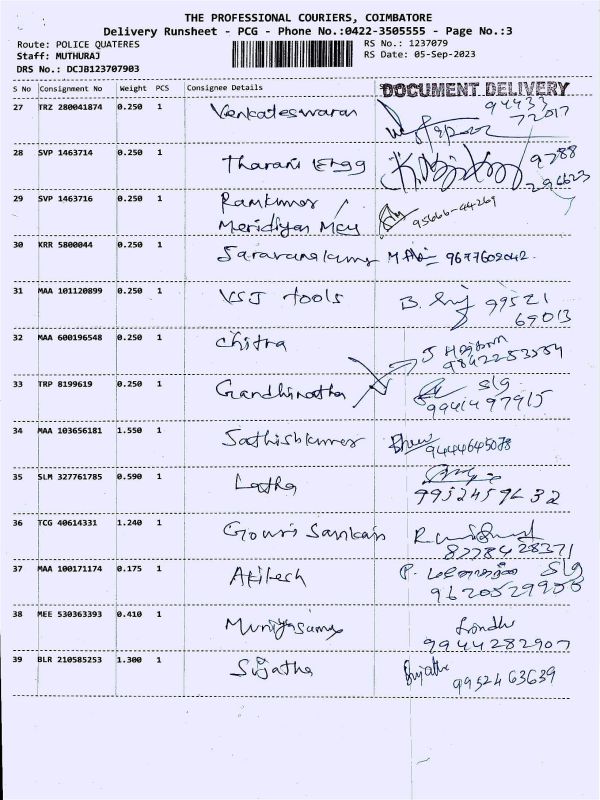 THE PROFESSIONAL COURIERS, COIMBATORE
Delivery Runsheet - PCG - Phone No.:0422-3505555 - Page No.:3
Route: POLICE QUATERES
RS No.: 1237079
Staff: MUTHURAJ
RS Date: 05-Sep-2023
DRS No.: DCJB123707903
S No Consignment No Weight PCS Consignee Details DOCUMENT DELIVERY
27 TRZ 280041874 0.250 1 Venkateswaran 94433
72017
28 SVP 1463714 0.250 1 Tharani Engg 9788
296623
29 SVP 1463716 0.250 1 Ramkumar
Meridiyan 95666-44269
30 KRR 5800044 0.250 1 Saravanakumar 9677602042.
31 MAA 101120899 0.250 1 VSJ tools B. 99521
69013
32 MAA 600196548 0.250 1 Chitra J
33 TRP 8199619 0.250 1 Gandhinatha Slg
9941497915
34 MAA 103656181 1.550 1 Sathishkumar
9444645078
35 SLM 327761785 0.590 1 Latha
9952459632
36 TCG 40614331 1.240 1 Gouri Sankar R
8778428371
37 MAA 100171174 0.175 1 Akilesh P. Slg
38 MEE 530363393 0.410 1 Muniyasamy
9944282907
39 BLR 210585253 1.300 1 Sujatha Sujatha
99524 63639